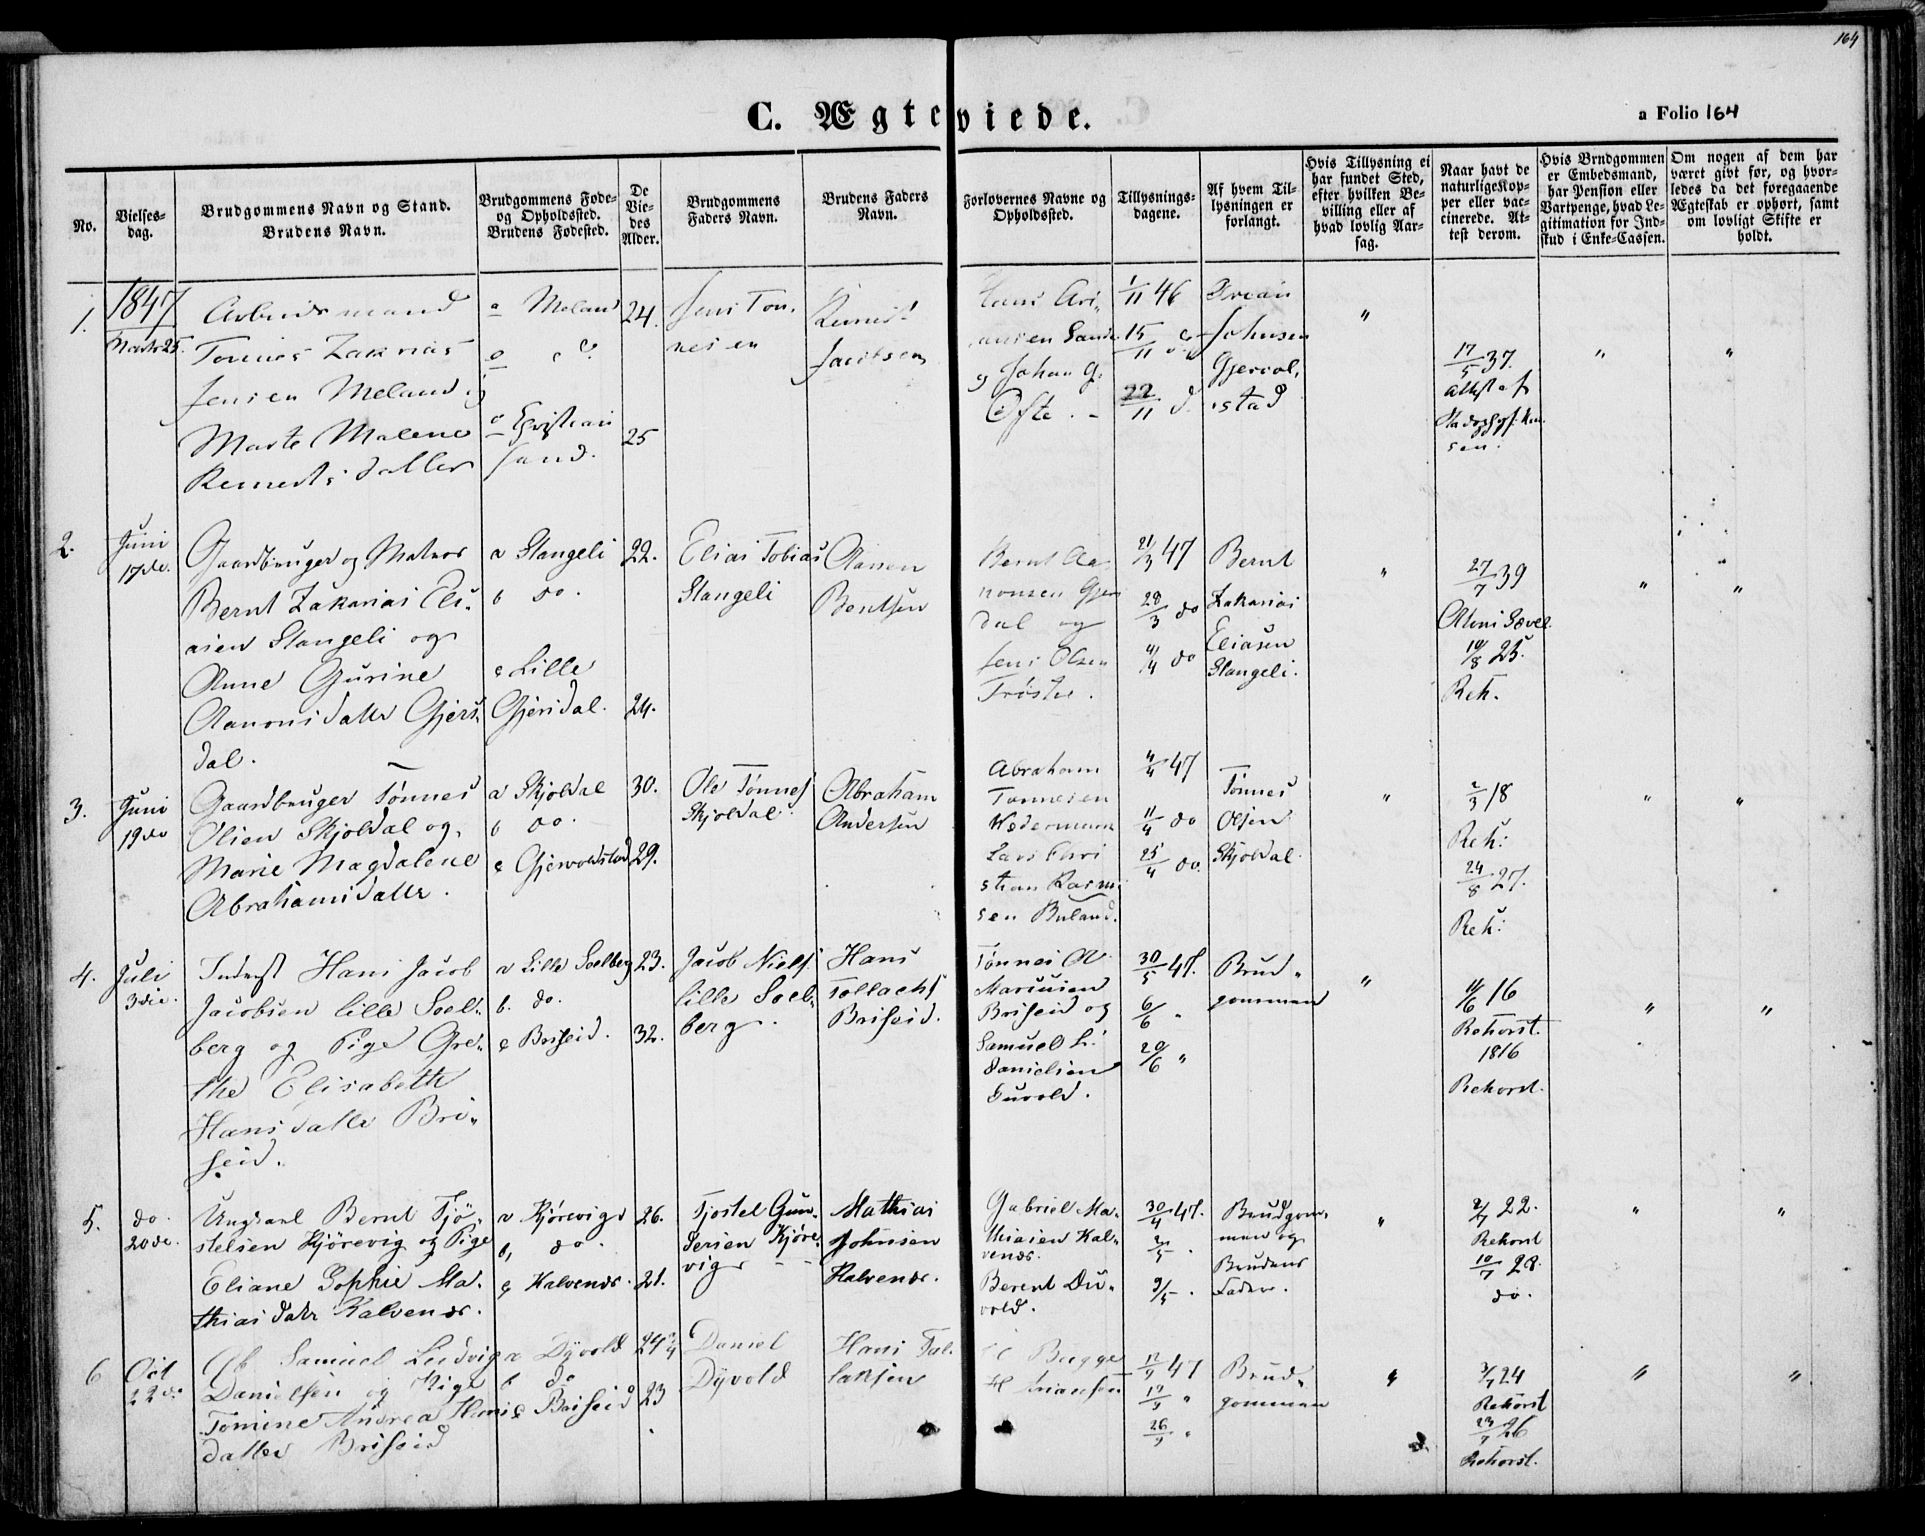 164
C. Ægteviede.
a Folio 164
No.
Vielses-
dag.
Brudgommens Navn og Stand.
Brudens Navn.
Brudgommens Føde-
og Opholdssted.
Brudens Fødested.
De
Vie-
des
Alder.
Brudgommens
Faders Navn.
Brudens Faders
Navn.
Forlovernes Navne og
Opholdssted.
Tillysnings-
dagene.
Af hvem Til-
lysningen er
forlangt.
Hvis Tillysning ei
har fundet Sted,
efter hvilken Be-
villing eller af
hvad lovlig Aar-
sag.
Naar havt de
naturlige Kop-
per eller vac-
cinerede. At-
test derom.
Hvis Brudgommen
er Embedsmand,
har Pension eller
Vartpenge, hvad Le-
gitimation for Ind-
skud i Enke-Cassen.
Om nogen af dem har
været givt før, og hvor-
ledes da det foregaaende
Ægteskab er ophørt, samt
om lovligt Skifte er
holdt.
1.
1847
Marts 25.
Arbeidsmand
Tønnes Zakrias
Jensen Meland og
Marte Malene
Remertsdatter
a Meland
b do
c Christian
sand.
24.
25
Jens Tøn-
nesen
Remert
Jacobsen
Hans Ari-
ansen Sande
og Johan G.
Øfte. -
1/11 46
15/11 do
22/11 d.
Johnsen
Gjervol-
stad
"
17/5 37.
Attest af
"
"
2.
Juni
17de.
Gaardbruger og Matros
Bernt Zakarias Eli-
asen Stangeli og
Anne Gurine
Aanonsdatter Gjers-
dal.
a Stangeli
b do.
c Lille
Gjersdal.
22.
24.
Elias Tobias
Stangeli
Aanon
Bentsen
Bernt Aa-
nonsen Gjers
dal og
Jens Olsen
Trøstre.
21/3 47
28/3 do
4/4 do
Bernt
Zakarias
Eliasen
Stangeli.
"
27/7 39
19/8 25.
Reh.
"
"
3.
Juni
19de
Gaardbruger Tønnes
Olsen Skjoldal og
Marie Magdalene
Abrahamsdatter.
a Skjoldal
b do.
c Gjervoldstad
30.
29.
Ole Tønnes
Skjoldal.
Abraham
Andersen
Abraham
Tønnesen
Lars Chri
stian Rasmu-
sen Buland.
4/4 47
11/4 do
25/4 do.
Tønnes
Olsen
Skjoldal.
"
2/3 18
Reh:
24/8 27.
Reh:
"
"
4.
Juli
3die.
Inderst Hans Jacob
Jacobsen lille Soel-
berg og Pige Gre-
the Elisabeth
Hansdatter Bri-
seid.
a Lille Soelberg
b. do.
c Briseid.
23.
32.
Jacob Niels.
lille Soel-
berg.
Hans
Tollachs
Briseid.
Tønnes A.
Marcusen
Briseid og
Samuel L.
Danielsen
Duvold.
30/5 47.
6/6 "
20/6 "
Brud-
gommen
"
11/6 16
Rehorst.
1816
Rehorst.
"
"
5.
do.
20de.
Ungkarl Bernt Tjø-
stelsen Kjørevig og Pige
Eliane Sophie Ma-
thiasdatr Kalvenes.
a Kjørevig
b, do.
c Kalvenes.
26.
21.
Tjostel Gun-
dersen Kjøre-
vig - -
Mathias
Johnsen
Kalvenes.
Gabriel Ma-
thiasen Kal-
venes.
Berent Du-
vold.
30/4 47.
2/5 .
9/5 .
Brudgom-
men og
Brudens
Fader.
"
2/7 22.
Rehorst
10/7 28.
do.
"
"
6
Oct
22de
Samuel Ludvig
Danielsen og Pige
Tomine Andrea Hans
datter Briseid
a Dyvold
b do
c Briseid
24
23
Daniel
Dyvold
Hans Tal-
laksen
Bugge
12/9 47
19/9 "
26/9 "
Brud-
gommen
"
3/7 24
Rehorst
23/7 26
Rehorst.
"
"